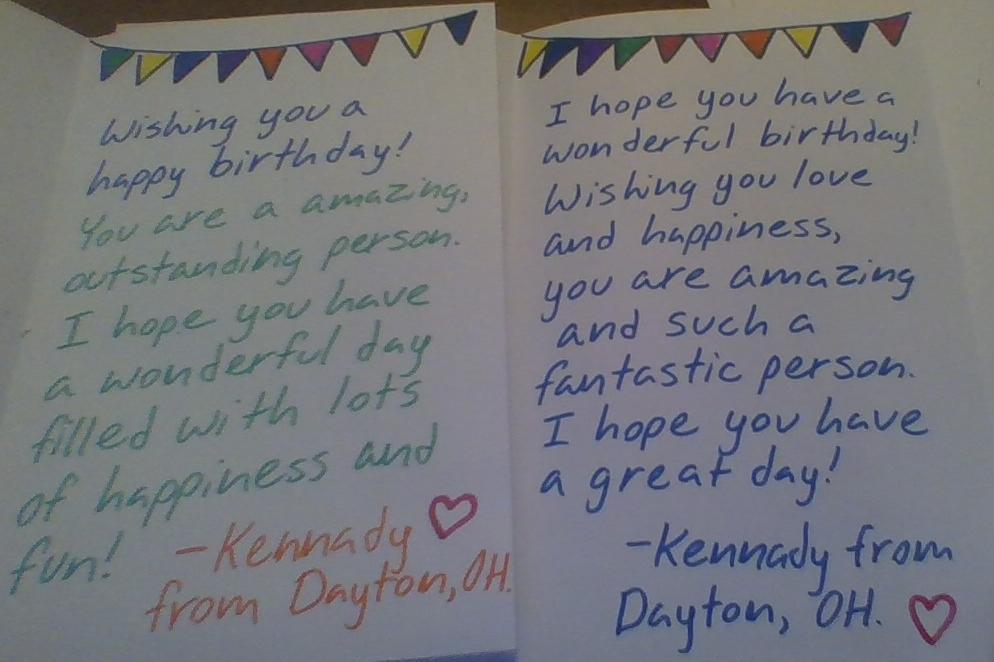 Wishing you a
happy birthday!
You are a amazing,
outstanding person.
I hope you have
a wonderful day
filled with lots
of happiness and
fun! -Kennady
from Dayton, OH.
I hope you have a
wonderful birthday!
Wishing you love
and happiness,
you are amazing
and such a
fantastic person.
I hope you have
a great day!
-Kennady from
Dayton, OH.